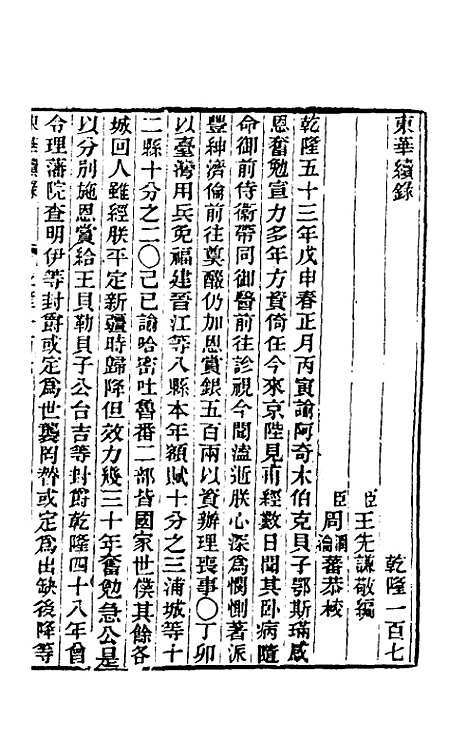 東華續錄　乾隆一百七
臣王先謙敬編
臣周潤蕃周瀹蕃恭校
乾隆五十三年戊申春正月丙寅諭阿奇木伯克貝子鄂斯璊感
恩奮勉宣力多年方資倚任今來京陛見甫經數日聞其臥病隨
命御前侍衛帶同御醫前往診視今聞溘逝朕心深爲憫惻著派
豐紳濟倫前往奠醊仍加恩賞銀五百兩以資辦理喪事〇丁卯
以臺灣用兵免福建晉江等八縣本年額賦十分之三浦城等十
二縣十分之二〇己巳諭哈密吐魯番二部皆國家世僕其餘各
城回人雖經朕平定新疆時歸降但效力幾三十年奮勉急公是
以分別施恩賞給王貝勒貝子公台吉等封爵乾隆四十八年曾
令理藩院查明伊等封爵或定爲世襲罔替或定爲出缺後降等
東華續錄